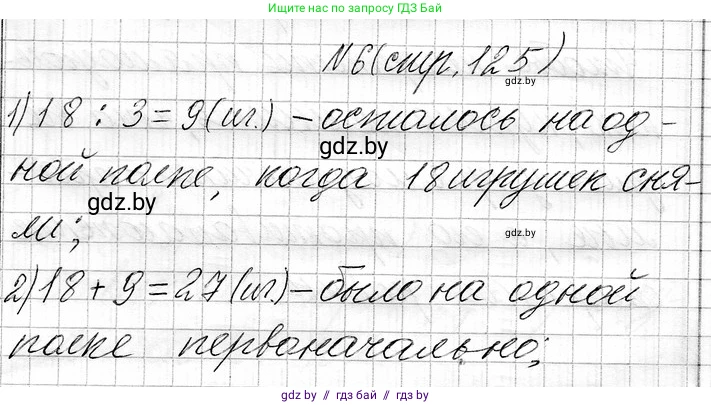 Ищите нас по запросу ГДЗ Бай
№6 (стр. 125)
gdz.by
1) 18 : 3 = 9 (иг.) – осталось на од-
gdz.by
ной полке, когда 18 игрушек сня-
gdz.by
ли;
gdz.by
2) 18 + 9 = 27 (иг.) – было на одной
полке первоначально;
gdz.by // гдз бай // gdz.by